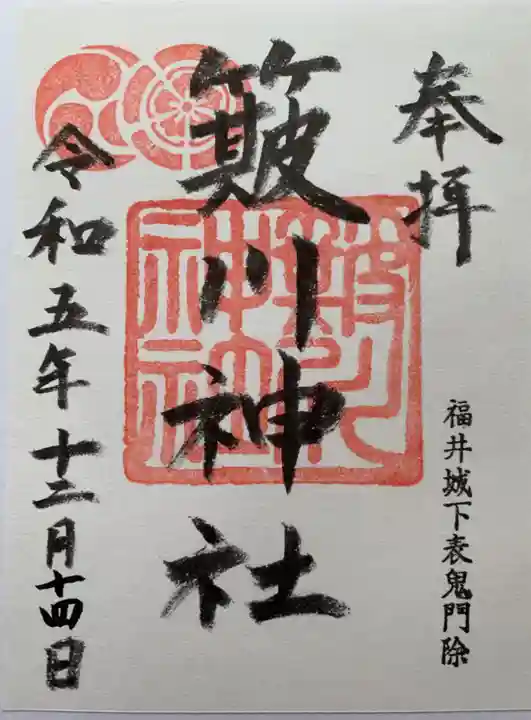 奉拝
福井城下表鬼門除
簸川神社
令和五年十二月十四日